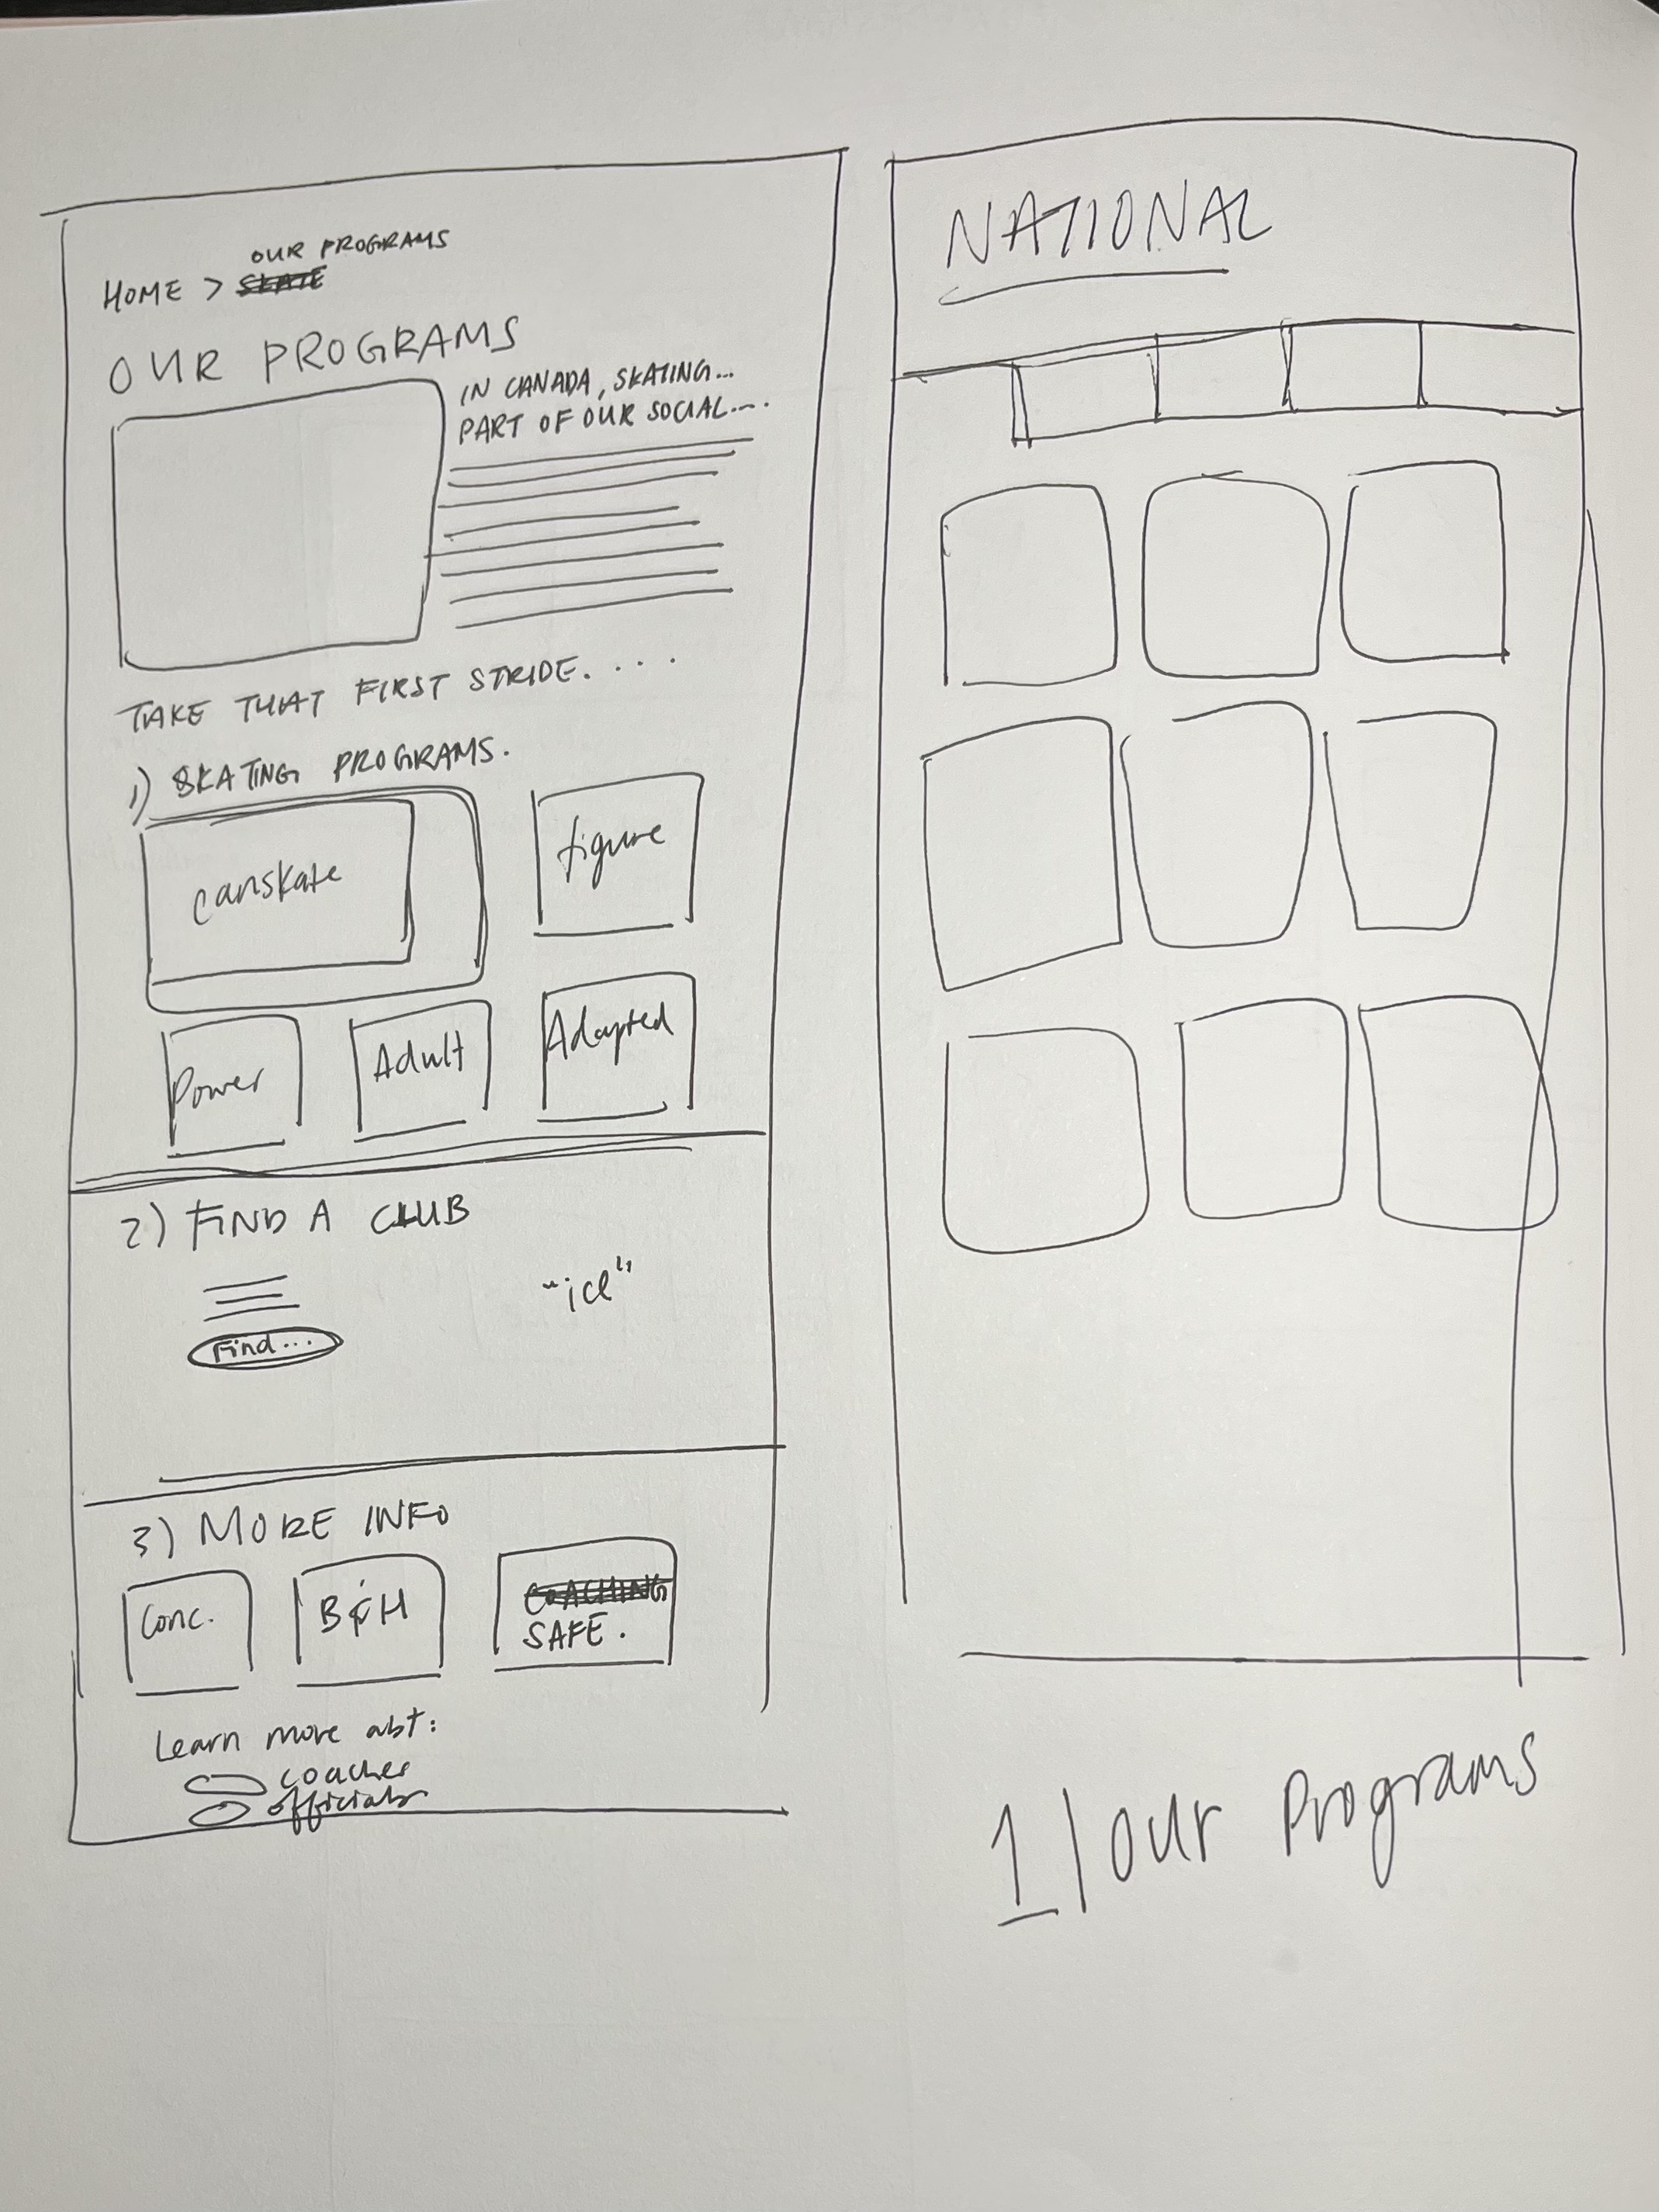 OUR PROGRAMS
HOME > SKATE
OUR PROGRAMS
IN CANADA, SKATING...
PART OF OUR SOCIAL....
TAKE THAT FIRST STRIDE....
1) SKATING PROGRAMS.
canskate
figure
Power
Adult
Adapted
2) FIND A CLUB
"ice"
Find...
3) MORE INFO
Conc.
B&H
COACHING
SAFE.
Learn more abt:
coaches
officials
NATIONAL
1 | Our Programs